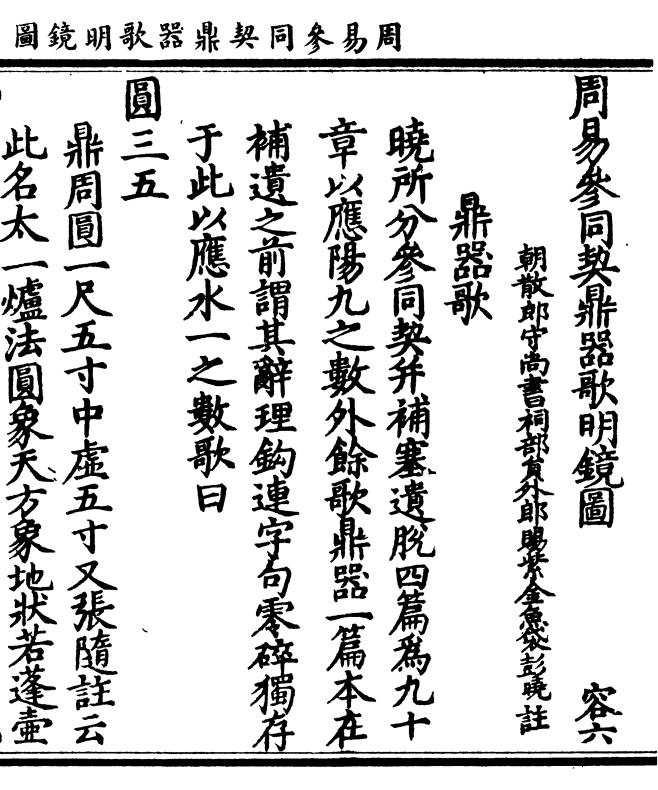 周易參同契鼎器歌明鏡圖
周易參同契鼎器歌明鏡圖 容六
朝散郎守尚書祠部員外郎賜紫金魚袋彭曉註
鼎器歌
曉所分參同契并補塞遺脫四篇爲九十
章以應陽九之數外餘歌鼎器一篇本在
補遺之前謂其辭理鈎連字句零碎獨存
于此以應水一之數歌曰
圓三五
鼎周圓一尺五寸中虛五寸又張隨註云
此名太一爐法圓象天方象地狀若蓬壺